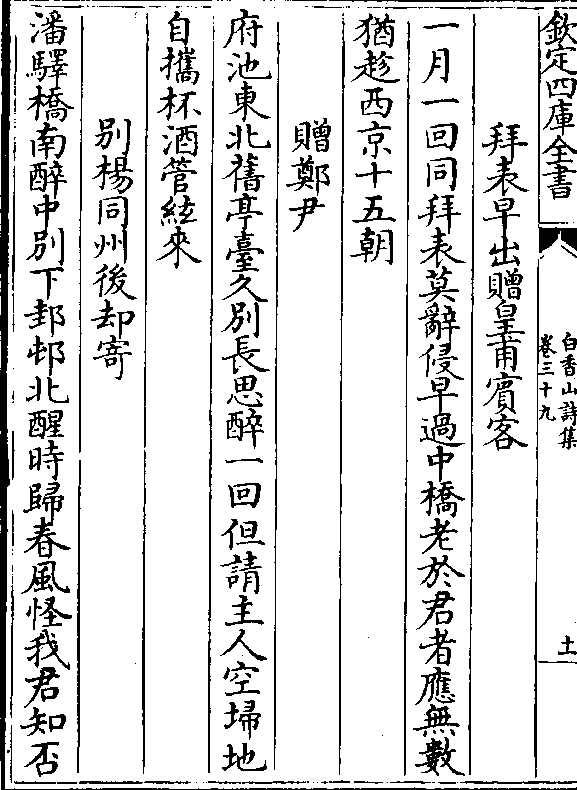 欽定四庫全書
白香山詩集
卷三十九
十一
拜表早出贈皇甫賓客
一月一回同拜表莫辭侵早過中橋老於君者應無數
猶趁西京十五朝
贈鄭尹
府池東北舊亭臺久別長思醉一回但請主人空埽地
自攜杯酒管絃來
別楊同州後却寄
潘驛橋南醉中別下邽邨北醒時歸春風怪我君知否